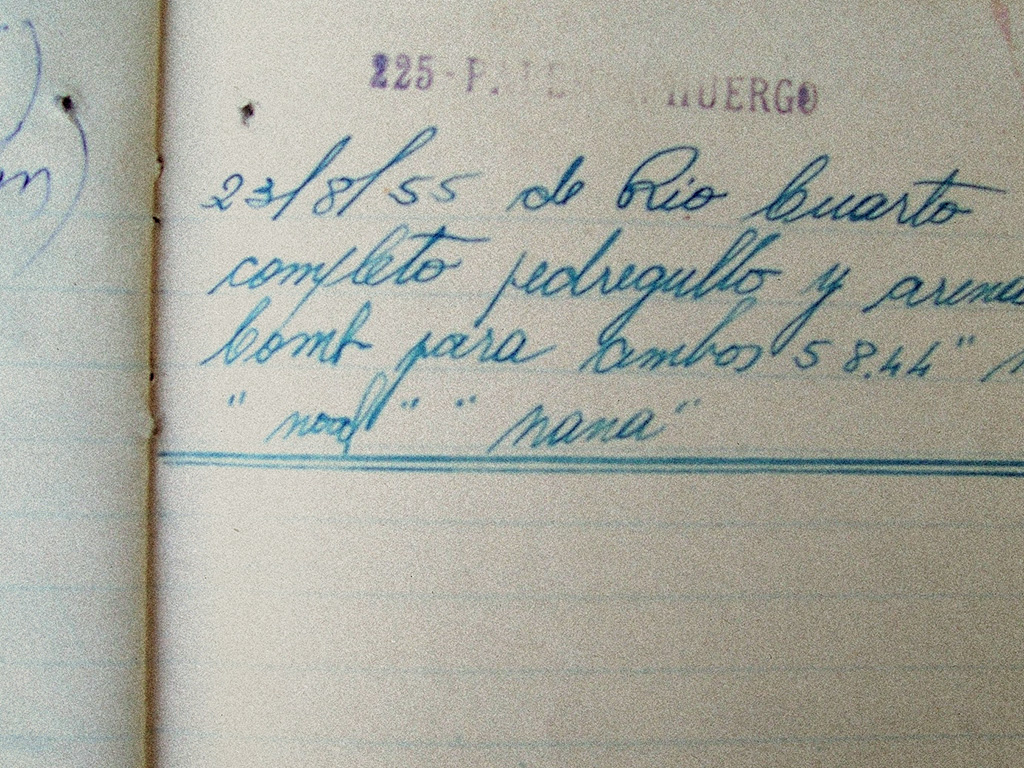 225 - P. HUERGO
23/8/55 de Rio Cuarto
completo pedregullo y arena
bomb para ambos 58.44"
" nood " " nana "